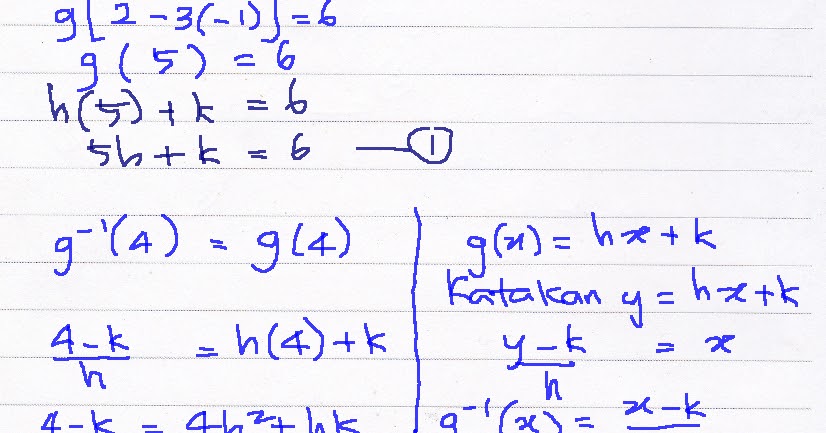 g[2 - 3(-1)] = 6
g(5) = 6
h(5) + k = 6
5h + k = 6 — ①
g⁻¹(4) = g(4)
4 - k / h = h(4) + k
4 - k = 4h² + hk
g(x) = hx + k
Katakan y = hx + k
y - k / h = x
g⁻¹(x) = x - k